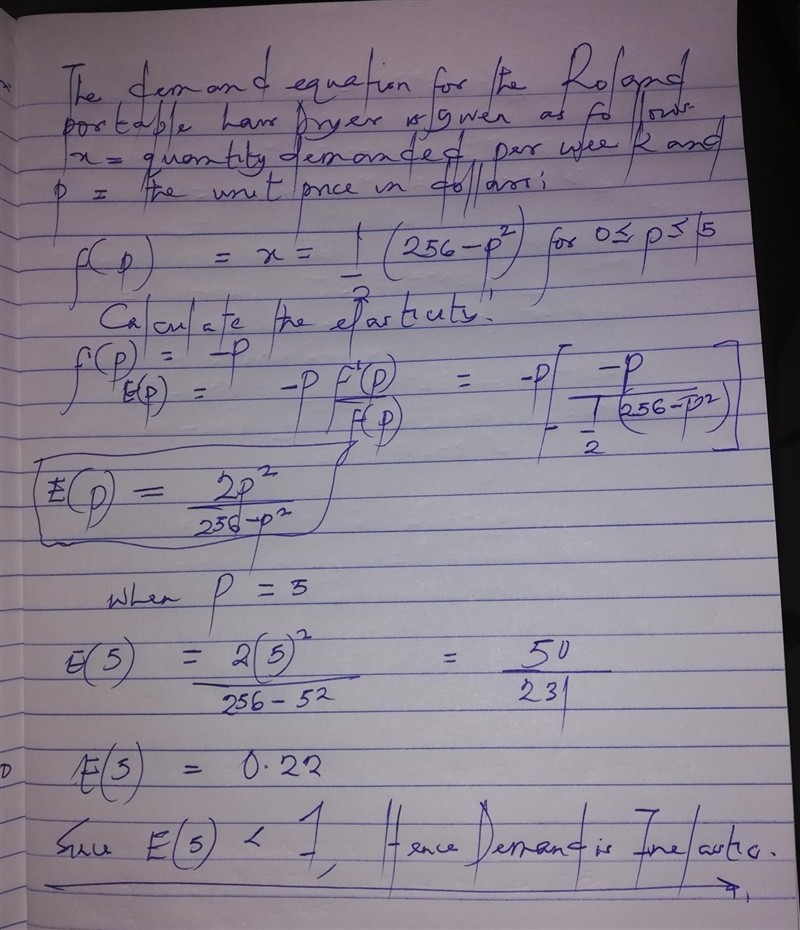 The demand equation for the Roland
portable hair Dryer is given as follows
x = quantity demanded per week and
p = the unit price in dollars;
f(p) = x = 1/2 (256-p²) for 0 ≤ p ≤ 15
Calculate the elasticity!
f'(p) = -p
E(p) = -p f'(p)/f(p) = -p [-p / 1/2 (256-p²)]
E(p) = 2p²/256-p²
When p = 5
E(5) = 2(5)²/256-5² = 50/231
E(5) = 0.22
Since E(5) < 1, Hence Demand is Inelastic.